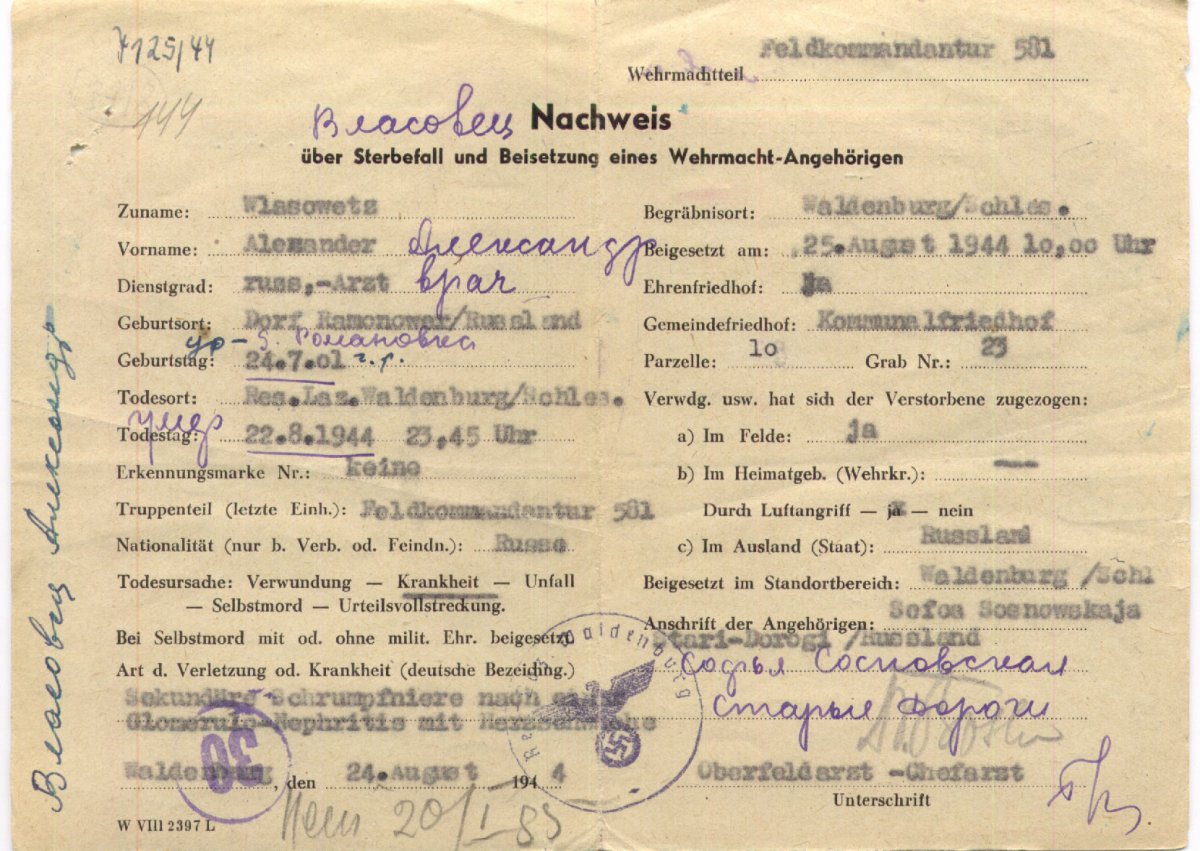 7125/44
144
Wehrmachtteil Feldkommandantur 581
Власовец Nachweis
über Sterbefall und Beisetzung eines Wehrmacht-Angehörigen
Zuname: Wlasowetz
Vorname: Alexander Александр
Dienstgrad: russ,-Arzt врач
Geburtsort: Dorf Ramonowar/Russland
ур- д. Романовка
Geburtstag: 24.7.01 г.р.
Todesort: Res.Laz.Waldenburg/Schles.
умер
Todestag: 22.8.1944 23,45 Uhr
Erkennungsmarke Nr.: keine
Truppenteil (letzte Einh.): Feldkommandantur 581
Nationalität (nur b. Verb. od. Feindn.): Russe
Todesursache: Verwundung — Krankheit — Unfall
— Selbstmord — Urteilsvollstreckung.
Bei Selbstmord mit od. ohne milit. Ehr. beigesetzt
Art d. Verletzung od. Krankheit (deutsche Bezeichng.)
Sekundäre Schrumpfniere nach einer
Glomerulo-Nephritis mit Herzschwäche
Waldenburg, den 24.August 1944
30
W VIII 2397 L
20/I-83
Begräbnisort: Waldenburg/Schles.
Beigesetzt am: 25.August 1944 10,00 Uhr
Ehrenfriedhof: ja
Gemeindefriedhof: Kommunalfriedhof
Parzelle: 10 Grab Nr.: 23
Verwdg. usw. hat sich der Verstorbene zugezogen:
a) Im Felde: ja
b) Im Heimatgeb. (Wehrkr.): —
Durch Luftangriff — ja — nein
c) Im Ausland (Staat): Russland
Beigesetzt im Standortbereich: Waldenburg /Schl
Anschrift der Angehörigen: Sofoa Sosnowskaja
Stari-Dorogi /Russland
Софья Сосновская
Старые Дороги
Waldenburg
Oberfeldarzt -Chefarzt
Unterschrift
Власовец Александр